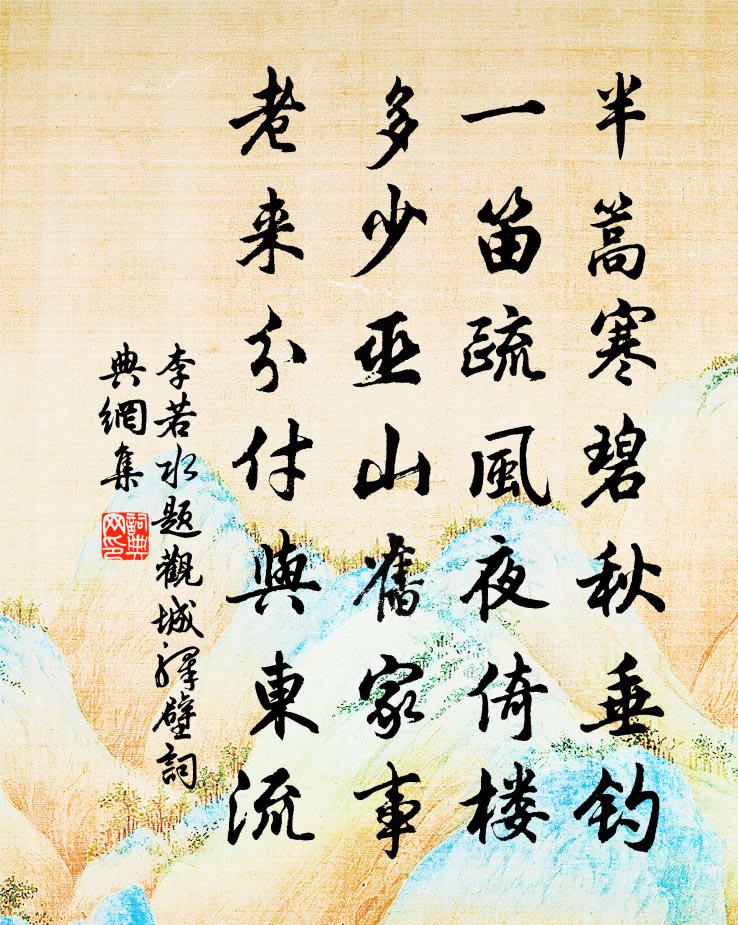 半篙寒碧秋垂钓
一笛疏風夜倚楼
多少巫山舊家事
老来分付與東流
李若水題觀城驛壁詞
典網集
詞典
网印